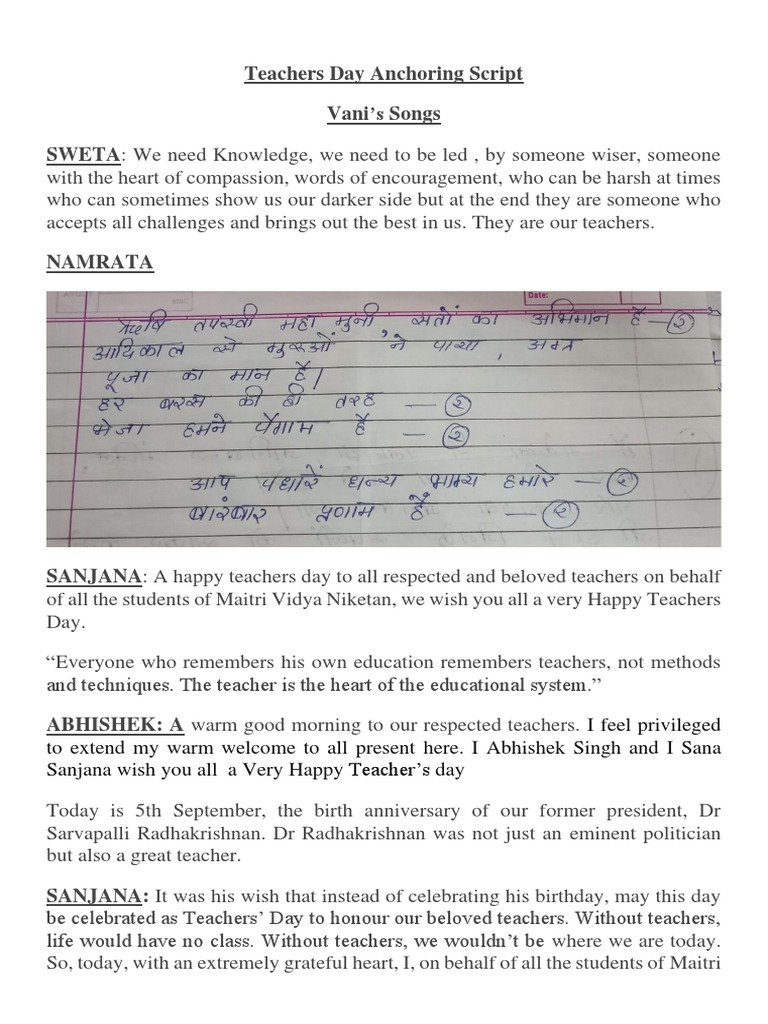 Teachers Day Anchoring Script
Vani's Songs
SWETA: We need Knowledge, we need to be led , by someone wiser, someone
with the heart of compassion, words of encouragement, who can be harsh at times
who can sometimes show us our darker side but at the end they are someone who
accepts all challenges and brings out the best in us. They are our teachers.
NAMRATA
Date:
ऋषि तपस्वी महा मुनी सतों का अभिमान है — २
आदिकाल से गुरूओं ने पाया, अग्र
पूजा का मान है।
हर बरस की ही तरह — २
भेजा हमने पैगाम है — २
आप पधारें धन्य भाग्य हमारे — २
बारंबार प्रणाम है — २
SANJANA: A happy teachers day to all respected and beloved teachers on behalf
of all the students of Maitri Vidya Niketan, we wish you all a very Happy Teachers
Day.
“Everyone who remembers his own education remembers teachers, not methods
and techniques. The teacher is the heart of the educational system.”
ABHISHEK: A warm good morning to our respected teachers. I feel privileged
to extend my warm welcome to all present here. I Abhishek Singh and I Sana
Sanjana wish you all a Very Happy Teacher’s day
Today is 5th September, the birth anniversary of our former president, Dr
Sarvapalli Radhakrishnan. Dr Radhakrishnan was not just an eminent politician
but also a great teacher.
SANJANA: It was his wish that instead of celebrating his birthday, may this day
be celebrated as Teachers’ Day to honour our beloved teachers. Without teachers,
life would have no class. Without teachers, we wouldn’t be where we are today.
So, today, with an extremely grateful heart, I, on behalf of all the students of Maitri